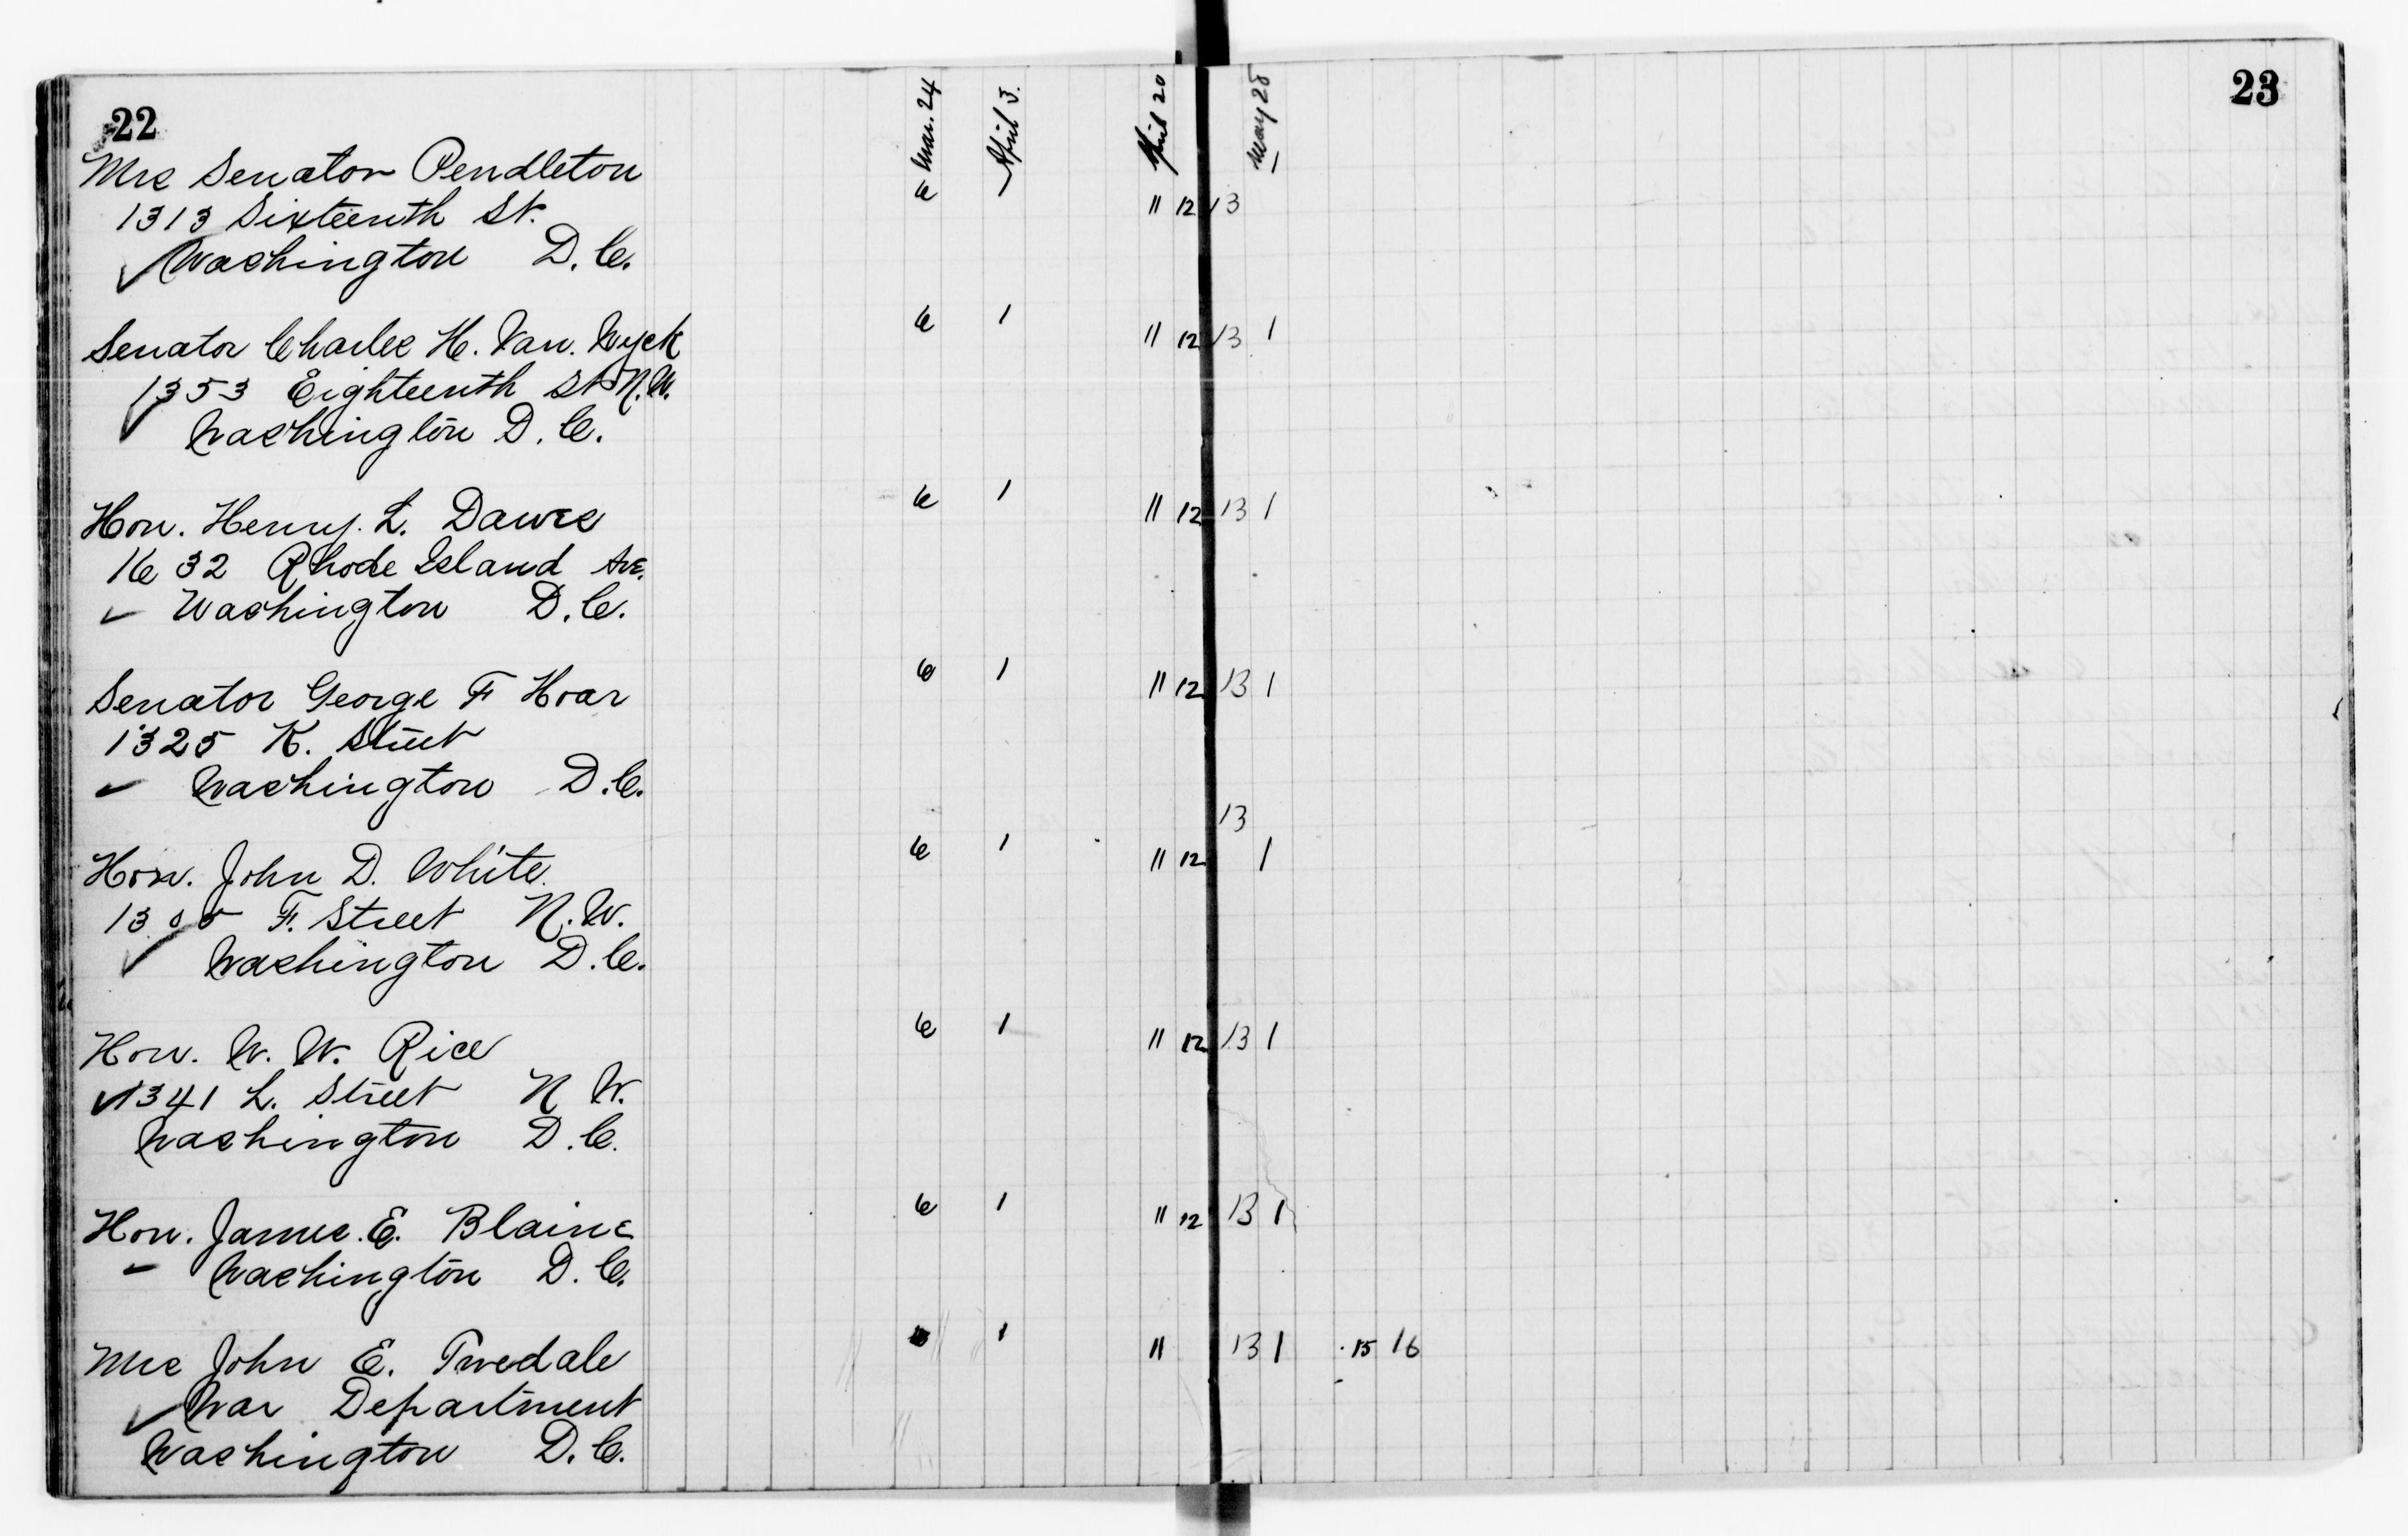 22
23
Mar. 24 April 3. April 20 May 28
Mrs Senator Pendleton
6 11 12 13
1313 Sixteenth St.
✓ Washington D.C.
Senator Charles H. Van. Wyck
6 1 11 12 13 1
1353 Eighteenth St N.W.
✓ Washington D.C.
Hon. Henry. L. Dawes
6 1 11 12 13 1
1632 Rhode Island Ave.
✓ Washington D.C.
Senator George F Hoar
6 1 11 12 13 1
1325 K. Street
✓ Washington D.C.
13
Hon. John D. White.
6 1 11 12 1
1305 F. Street N.W.
✓ Washington D.C.
Hon. W. W. Rice
6 1 11 12 13 1
✓ 1341 L. Street N W.
Washington D.C.
Hon. James. E. Blaine
6 1 11 12 13 1
✓ Washington D.C.
Mrs John E. Twedale
1 11 13 1 15 16
✓ War Department
Washington D.C.